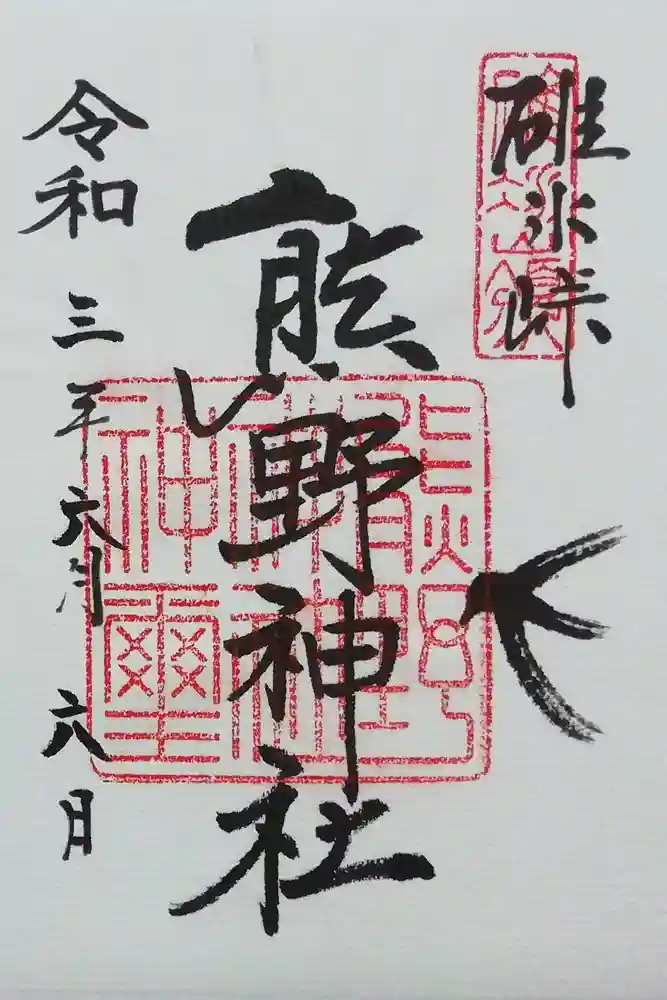 碓氷峠
熊野神社
熊野
神社
神璽
令和三年六月六日